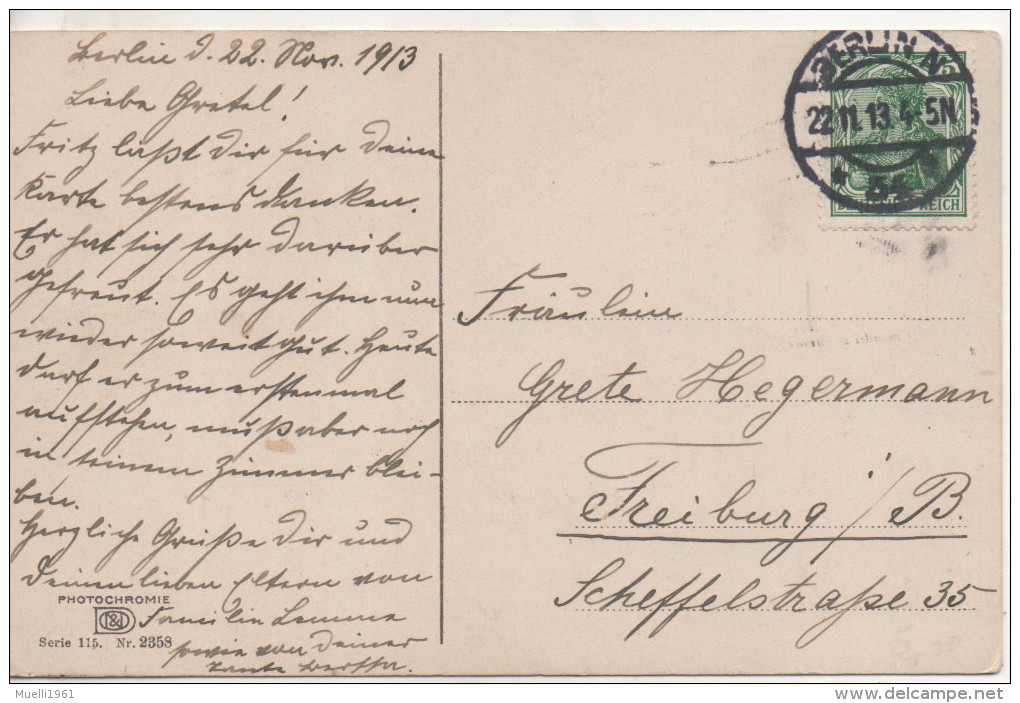 Berlin d. 22. Nov. 1913
Liebe Gretel!
Fritz laßt Dir für Deine
Karte bestens danken.
Er hat sich sehr darüber
gefreut. Es geht ihm nun
wieder soweit gut. Heute
darf er zum erstenmal
aufstehen, muß aber noch
in seinem Zimmer blei-
ben.
Herzliche Grüße Dir und
Deinen lieben Eltern von
Familie Lemme
sowie von Deiner
Tante Bertha.
PHOTOCHROMIE
Serie 115. Nr. 2358
BERLIN N
22.11.13.4-5N
54
5
DEUTSCHES REICH
Fräulein
Grete Hegermann
Freiburg i/B.
Scheffelstraße 35
Muelli1961
www.delcampe.net